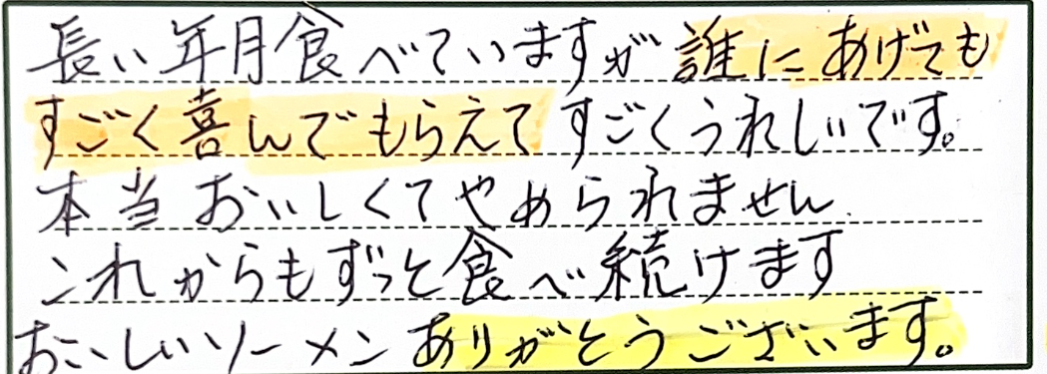 長い年月食べていますが誰にあげても
すごく喜んでもらえてすごくうれしいです。
本当おいしくてやめられません.
これからもずっと食べ続けます
おいしいソーメンありがとうございます。